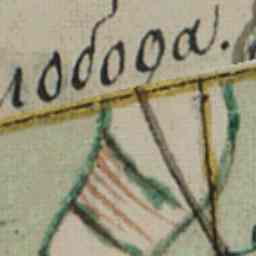 лобода.